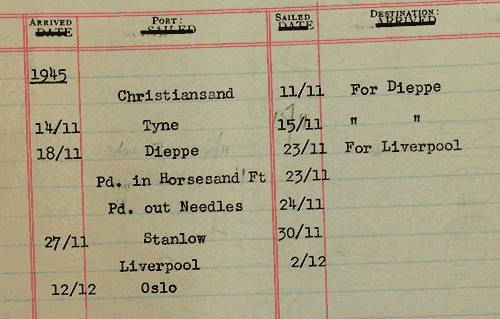 ARRIVED PORT: SAILED DESTINATION:
DATE SAILED DATE ARRIVED
1945
Christiansand 11/11 For Dieppe
14/11 Tyne 15/11 " "
18/11 Dieppe 23/11 For Liverpool
Pd. in Horsesand Ft 23/11
Pd. out Needles 24/11
27/11 Stanlow 30/11
Liverpool 2/12
12/12 Oslo